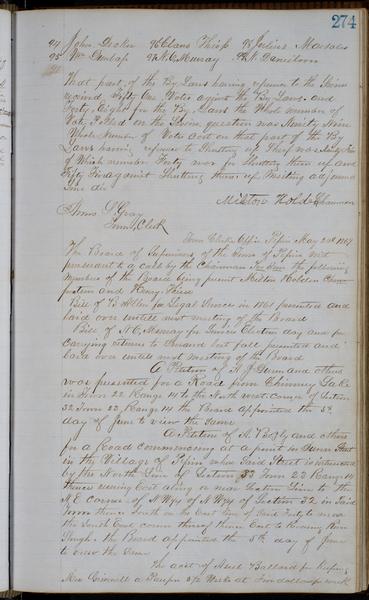 274
94 John Decker 96 Claus Thies 98 Julius Marsales
95 Wm Dunlap 97 N C Murray 99 N Danielson
That part of the By Laws having refference to the Swine
received Fifty One Votes against the By Laws and
Forty Eight for the By Laws the Whole number of
Votes Polled on the Swine question was Ninety Nine
Whole Number of Votes Cast on that part of the By
Laws having refference to Sheep was
of Which number Forty was for Shutting them up and
Fifty against Shutting them up Meeting adjourned
Sine die
Milton Holden Chairman
S. Gray
Town Clerk
Town Clerks Office Pepin May 1867
The Board of Supervisors of the town of Pepin met
pursuant to a call by the Chairman the following
members of the Board being present Milton Holden
and Henry
Bill of B Allen for Legal Services in 1861 presented and
laid over untill next meeting of the Board
Bill of N C Murray for Election day and for
carrying returns to Durand last fall presented and
laid over untill next meeting of the Board
A Petition of A J and others
was presented for a Road from Chimney Lake
in Town 22 Range 14 to the North west corner of Section
32 Town 23 Range 14 the Board appointed the 5th
day of June to view the same
A Petition of A. and others
for a Road commencing at a point in Street
in the Village of Pepin where Said Street is intersected
by the North line of Section Town 23 Range 14
thence running East along or near Section line to the
N.E corner of N W 1/4 of N W 1/4 of Section 32 in Said
Town thence South on the East line of Said Forty to near
the South East corner thereof thence East to
the Board appointed the 5th day of June
to view the Same
The acct of Ballard for Keeping
Mrs a Pauper 5 1/2 Weeks at Two dollars per week